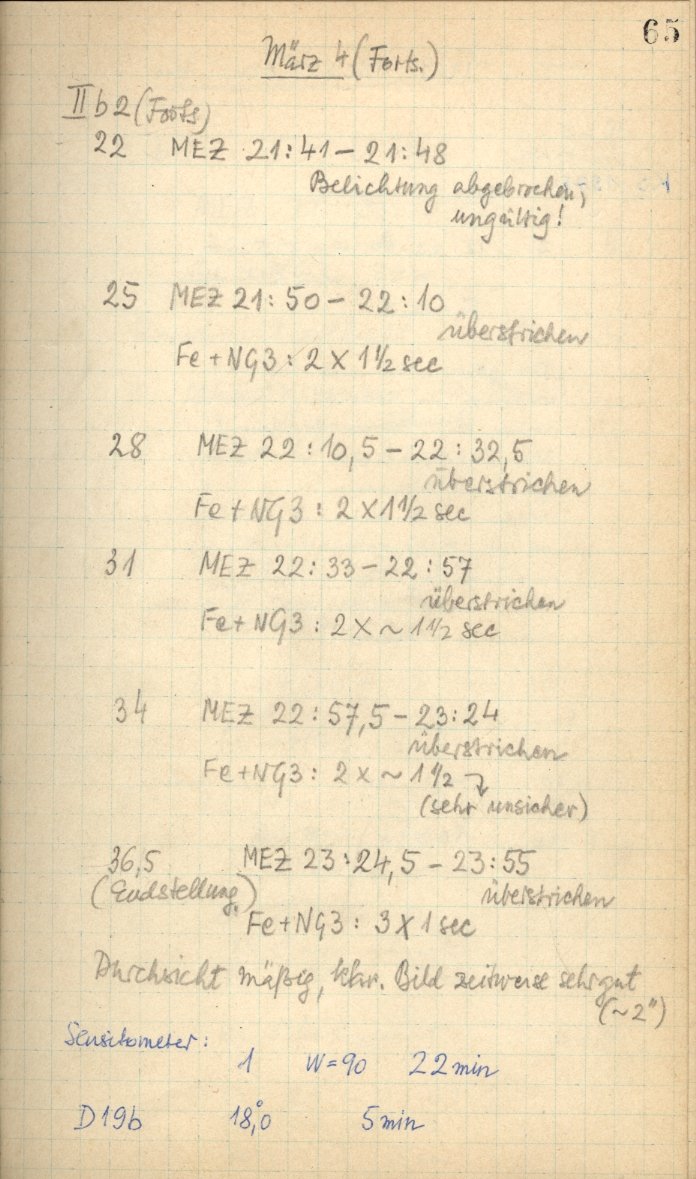 65
März 4 (Forts.)
II b 2 (Forts)
22 MEZ 21:41 – 21:48
Belichtung abgebrochen,
ungültig!
25 MEZ 21:50 – 22:10
überstrichen
Fe + NG3 : 2 × 1 1/2 sec
28 MEZ 22:10,5 – 22:32,5
überstrichen
Fe + NG3 : 2 × 1 1/2 sec
31 MEZ 22:33 – 22:57
überstrichen
Fe + NG3 : 2 × ~ 1 1/2 sec
34 MEZ 22:57,5 – 23:24
überstrichen
Fe + NG3 : 2 × ~ 1 1/2
(sehr unsicher)
36,5 MEZ 23:24,5 – 23:55
(Endstellung) überstrichen
Fe + NG3 : 3 × 1 sec
Durchsicht mäßig, Bild zeitweise sehr gut
(~2")
Sensitometer:
1 W=90 22 min
D19b 18°,0 5 min